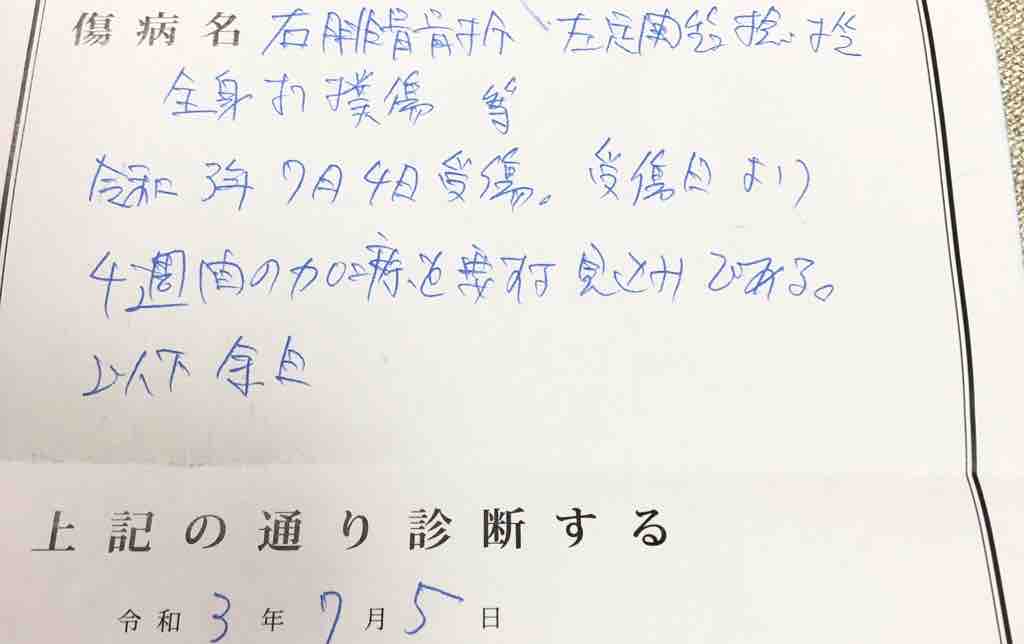 傷病名 右腓骨骨折、左足関節捻挫
全身打撲傷 等
令和3年7月4日受傷。受傷日より
4週間の加療を要する見込みである。
以下余白
上記の通り診断する
令和3年7月5日